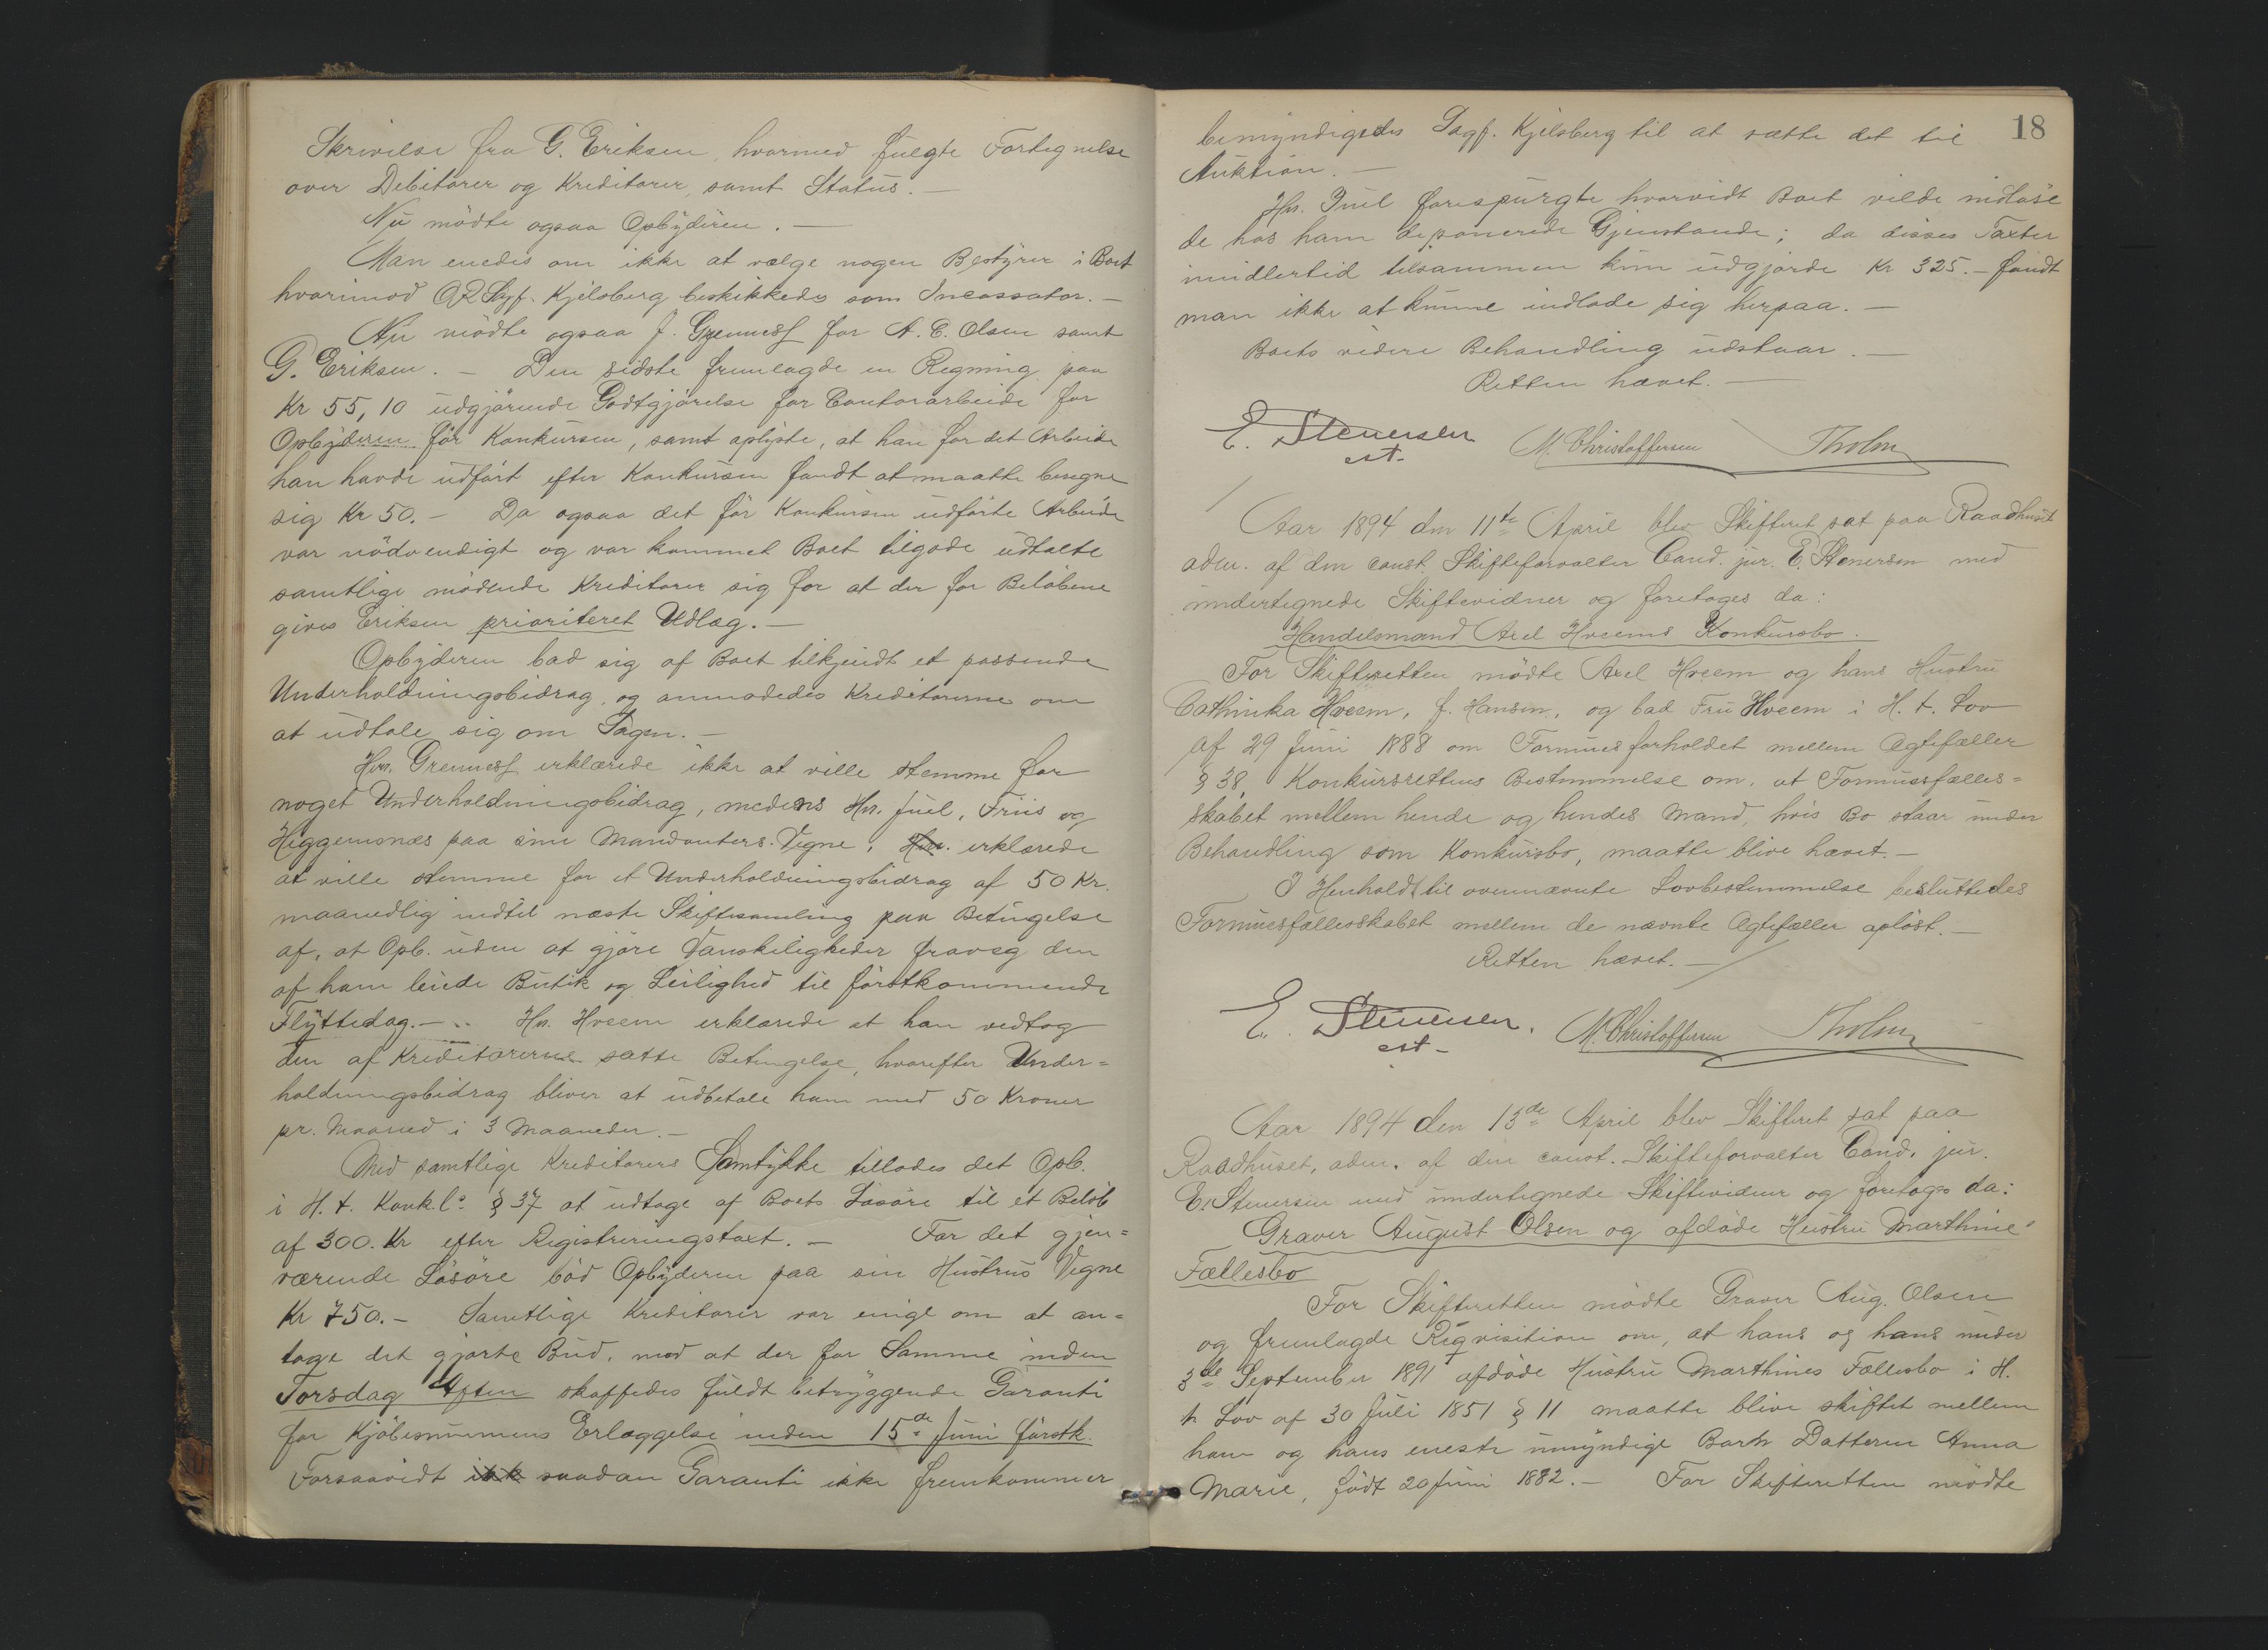 Skrivelse fra G. Eriksen, hvormed fulgte Fortegnelse
over Debitorer og Kreditorer, samt Status. —
Nu mödte ogsaa Opbyderen. —
Man enedes om ikke at vælge nogen Bestyrer i Boet
hvorimod ORSagf. Kjelsberg beskikkedes som Incassator. —
Nu mödte ogsaa J. Grenness for A. C. Olsen samt
G. Eriksen. — Den sidste fremlagde en Regning paa
Kr 55,10 udgjörende Godtgjörelse for Contorarbeide for
Opbyderen för Konkursen, samt oplyste, at han for det Arbeide
han havde udfört efter Konkursen fandt at maatte beregne
sig Kr 50. — Da ogsaa det för Konkursen udförte Arbeide
var nödvendigt og var kommet Boet tilgode udtalte
samtlige mödende Kreditorer sig for at der for Belöbene
gives Eriksen prioriteret Udlæg. —
Opbyderen bad sig af Boet tilkjendt et passende
Underholdningsbidrag, og anmodedes Kreditorerne om
at udtale sig om Sagen. —
Hrr. Grenness erklærede ikke at ville stemme for
noget Underholdningsbidrag, medens Hrr. Juel, Friis og
Heggemsnæs paa sine Mandanters Vegne, Hrr. erklærede
at ville stemme for et Underholdningsbidrag af 50 Kr.
maanedlig indtil næste Skiftesamling paa Betingelse
af, at Opb. uden at gjöre Vanskeligheder fraveg den
af ham leiede Butik og Leilighed til förstkommende
Flyttedag. — Hr. Hveem erklærede at han vedtog
den af Kreditorerne satte Betingelse, hvorefter Under=
holdningsbidrag bliver at udbetale ham med 50 Kroner
pr. Maaned i 3 Maaneder. —
Med samtlige Kreditorers Samtykke tillodes det Opb.
i H. t. Konk.l. § 37 at udtage af Boets Lösöre til et Belöb
af 300. Kr efter Registreringstaxt. — For det gjen=
værende Lösöre böd Opbyderen paa sin Hustrus Vegne
Kr 750. — Samtlige Kreditorer var enige om at an=
tage det gjorte Bud, mod at der for Samme inden
Torsdag Aften skaffedes fuldt betryggende Garanti
for Kjöbesummens Erlæggelse inden 15de Juni förstk.
Forsaavidt ikk saadan Garanti ikke fremkommer
18
bemyndigedes Sagf. Kjelsberg til at sætte det til
Auktion. —
Hr. Juel forespurgte hvorvidt Boet vilde indlöse
de hos ham deponerede Gjenstande; da disses Taxter
imidlertid tilsammen kun udgjorde Kr 325. — fandt
man ikke at kunne indlade sig herpaa. —
Boets videre Behandling udstaar. —
Retten hævet. —
E. Stenersen
cst.
M. Christoffersen Tholm
Aar 1894 den 11te April blev Skifteret sat paa Raadhuset
adm. af den const. Skifteforvalter Cand. jur. E. Stenersen med
undertegnede Skiftevidner og foretoges da:
Handelsmand Axel Hveems Konkursbo.
For Skifteretten mödte Axel Hveem og hans Hustru
Cathinka Hveem, f. Hansen, og bad Fru Hveem i H. t. Lov
af 29 Juni 1888 om Formuesforholdet mellem Ægtefæller
§ 38, Konkursrettens Bestemmelse om, at Formuesfælles=
skabet mellem hende og hendes Mand, hvis Bo staar under
Behandling som Konkursbo, maatte blive hævet. —
I Henhold til ovennævnte Lovbestemmelse besluttedes
Formuesfællesskabet mellem de nævnte Ægtefæller oplöst. —
Retten hævet. —
E. Stenersen.
cst-
M. Christoffersen Tholm
Aar 1894 den 13de April blev Skifteret sat paa
Raadhuset, adm. af den const. Skifteforvalter Cand. jur.
E. Stenersen med undertegnede Skiftevidner og foretoges da:
Graver August Olsen og afdöde Hustru Marthine's
Fællesbo
For Skifteretten mödte Graver Aug. Olsen
og fremlagde Reqvisition om, at hans og hans under
3de September 1891 afdöde Hustru Marthines Fællesbo i H.
t. Lov af 30 Juli 1851 § 11 maatte blive skiftet mellem
ham og hans eneste umyndige Barn Datteren Anna
Marie, födt 20 Juni 1882. — For Skifteretten mödte